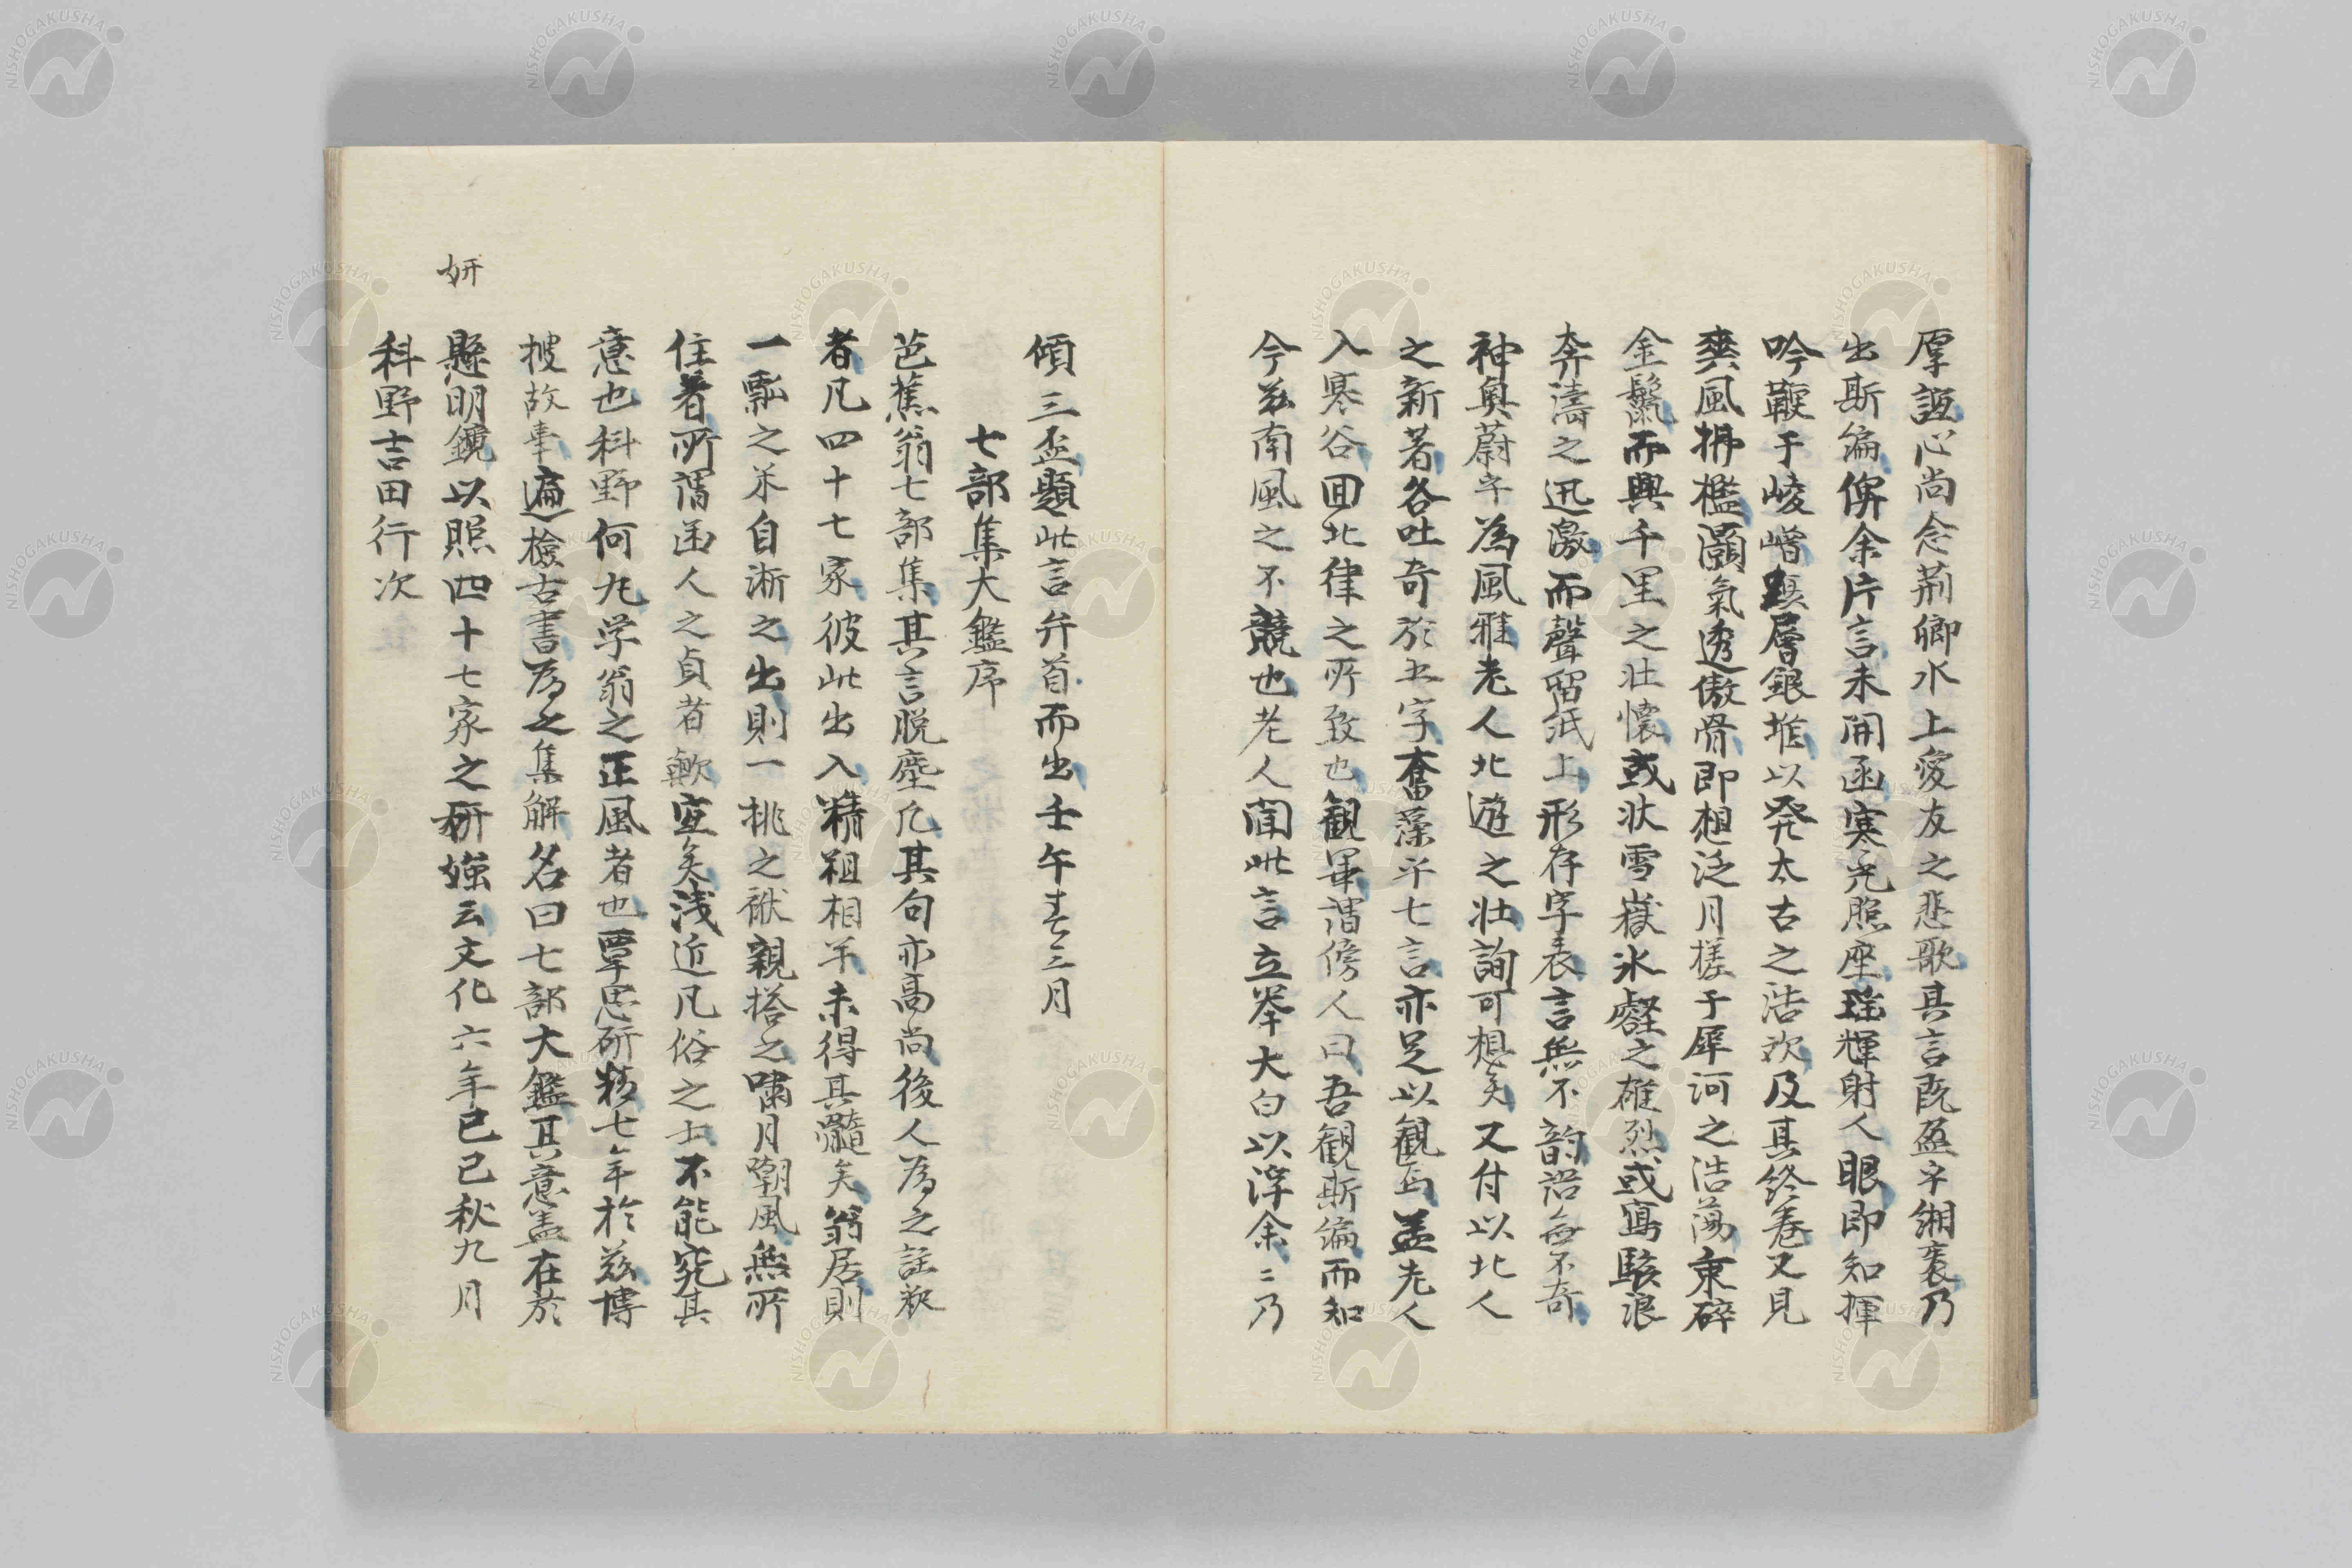 厚誼心尚念荊卿水上愛友之悲歌其言既盈乎緗裏乃
出斯編俾余片言未開函寒光照座瑤輝射人眼即知揮
吟鞭于崚嶒躡層銀堆以発太古之浩次及其終巻又見
爽風拂檻灝氣透傲骨即想泛月槎于犀河之浩蕩東碎
金鬣而興千里之壮懷或状雪嶽氷壑之雄烈或寫駭浪
奔濤之迅激而聲留紙上形存字表言無不韵語無不奇
神奥蔚乎為風雅老人北遊之壮詢可想矣又付以北人
之新著各吐奇於五字奮藻乎七言亦足以観焉盖老人
入寒谷回北律之所致也観畢謂傍人曰吾観斯編而知
今茲南風之不競也老人聞此言立挙大白以浮余〻乃
傾三盃題此言弁首而出壬午春三月
七部集大鑑序
芭蕉翁七部集其言脱塵凡其句亦高尚後人為之註釈
者凡四十七家彼此出入精粗相半未得其髓矣翁居則
一瓢之米自淅之出則一挑之褚親搭之嘯月嘲風無所
住著所謂函人之貞者歟宜矣浅近凡俗之士不能究其
意也科野何丸学翁之正風者也覃思研精七年於茲博
披故事遍檢古書為之集解名曰七部大鑑其意盖在於
懸明鏡以照四十七家之研媸云文化六年己巳秋九月
科野吉田行次
妍